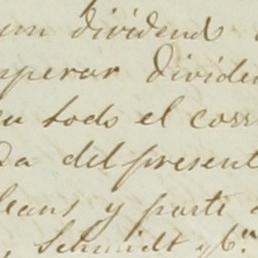 un dividend
perar divide
todo el corr
da del present
leans y parte
Schmidt y Ca.